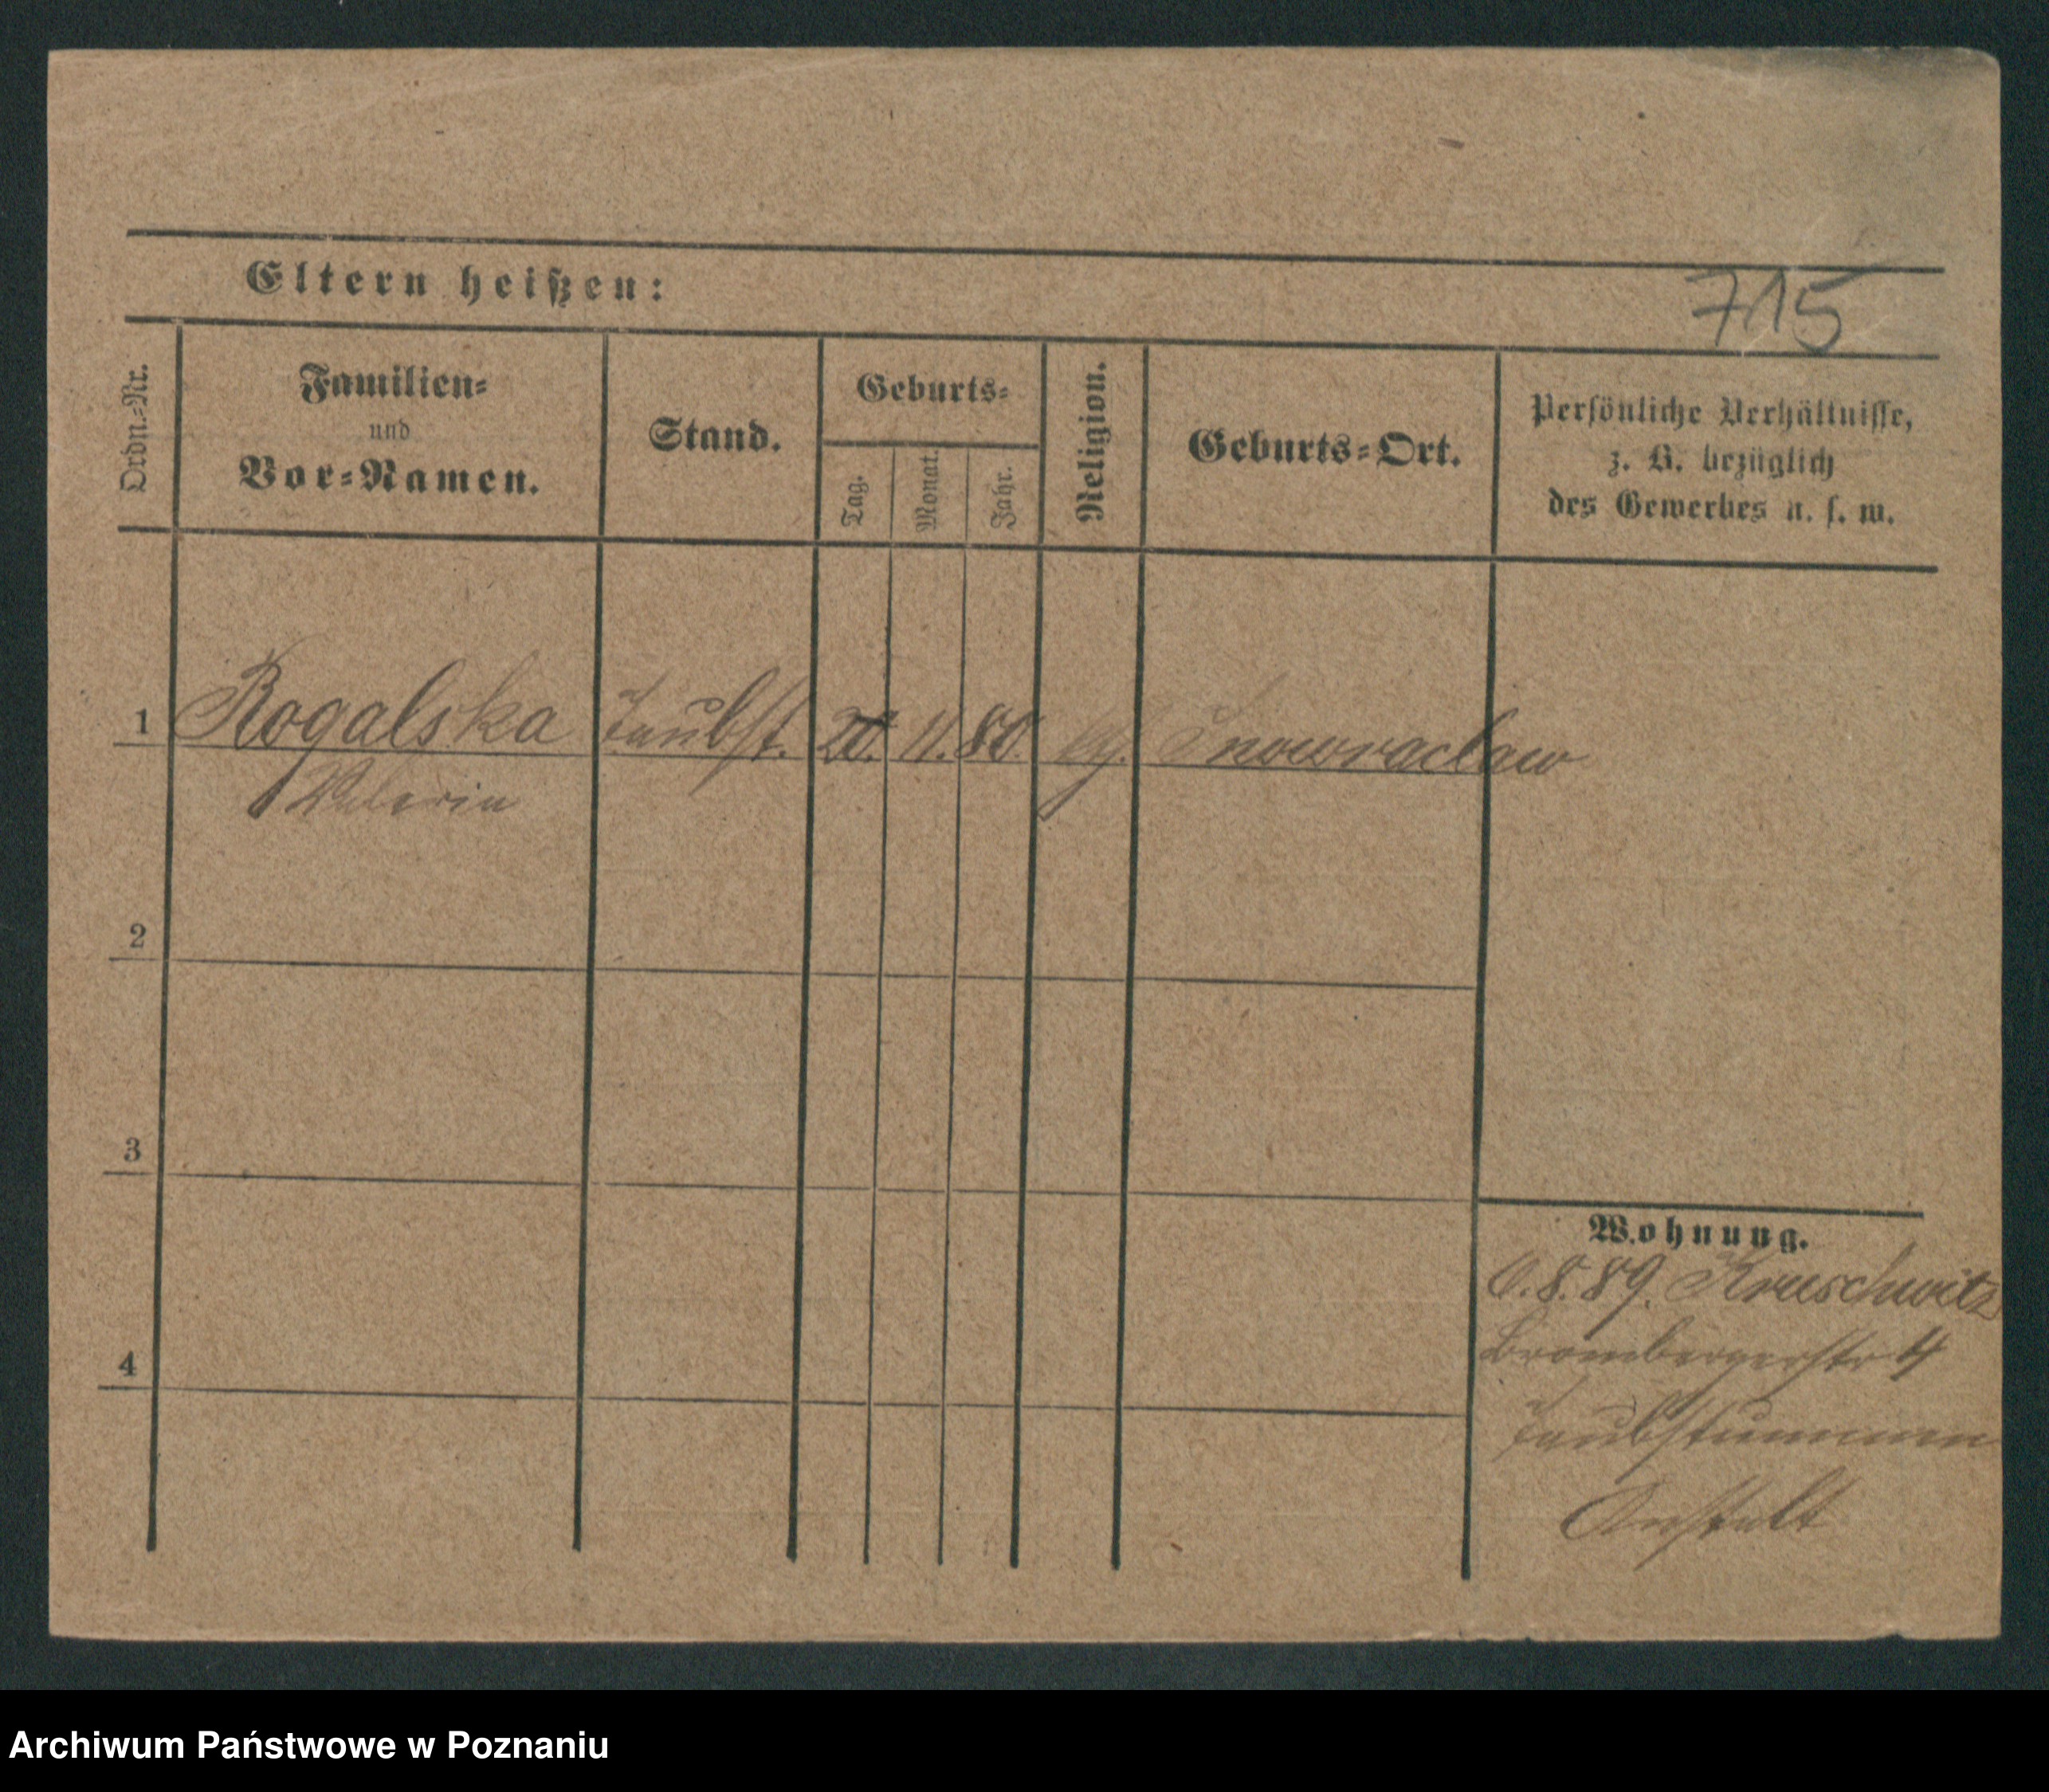 Eltern heißen:
715
Ordn.-Nr.
Familien-
und
Vor-Namen.
Stand.
Geburts-
Tag.
Monat.
Jahr.
Religion.
Geburts-Ort.
Persönliche Verhältnisse,
z. B. bezüglich
des Gewerbes u. s. w.
1 Rogalska Taubst. 11. 80. Inowraclaw
Valeria
2
3
4
Wohnung.
8. 89. Kruschwitz
Brombergerstr 4
Taubstummen
Anstalt
Archiwum Państwowe w Poznaniu